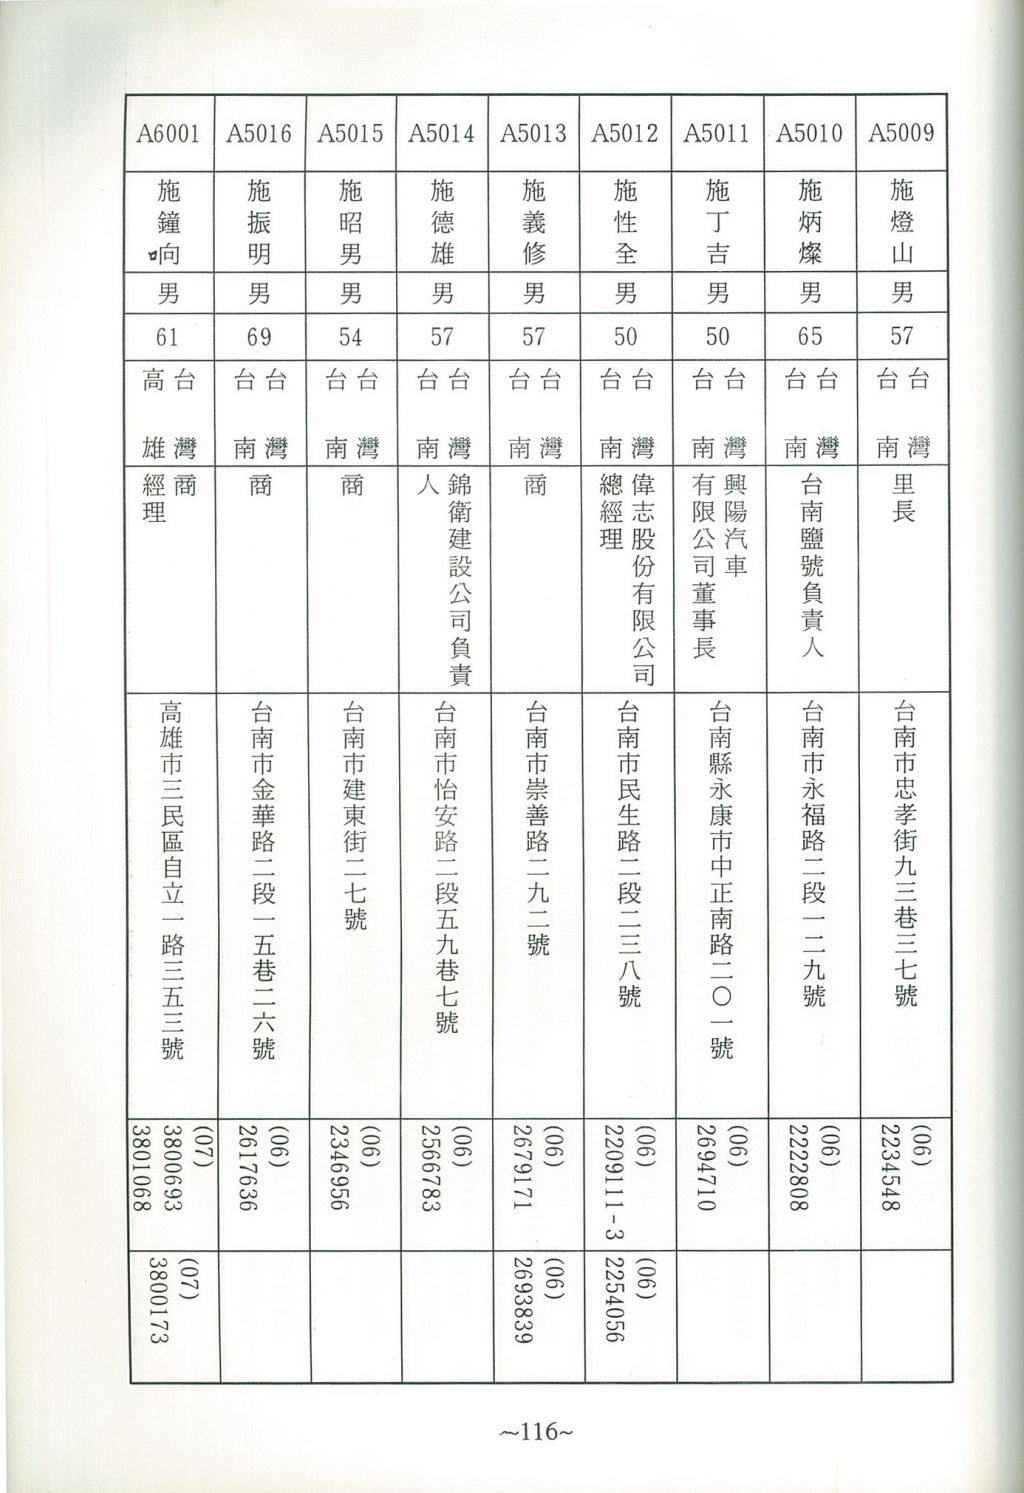 A5009
施燈山
男
57
台灣
台南
里長
台南市忠孝街九三巷三七號
(06)
2234548
A5010
施炳燦
男
65
台灣
台南
台南鹽號負責人
台南市永福路二段一二九號
(06)
2222808
A5011
施丁吉
男
50
台灣
台南
興陽汽車
有限公司董事長
台南縣永康市中正南路二〇一號
(06)
2694710
A5012
施性全
男
50
台灣
台南
偉志股份有限公司
總經理
台南市民生路二段二三八號
(06)
2209111-3
(06)
2254056
A5013
施義修
男
57
台灣
台南
商
台南市崇善路二九二號
(06)
2679171
(06)
2693839
A5014
施德雄
男
57
台灣
台南
錦衛建設公司負責
人
台南市怡安路二段五九巷七號
(06)
2566783
A5015
施昭男
男
54
台灣
台南
商
台南市建東街二七號
(06)
2346956
A5016
施振明
男
69
台灣
台南
商
台南市金華路二段一五巷二六號
(06)
2617636
A6001
施鐘响
男
61
台灣
高雄
商
經理
高雄市三民區自立一路三五三號
(07)
3800693
3801068
(07)
3800173
~116~